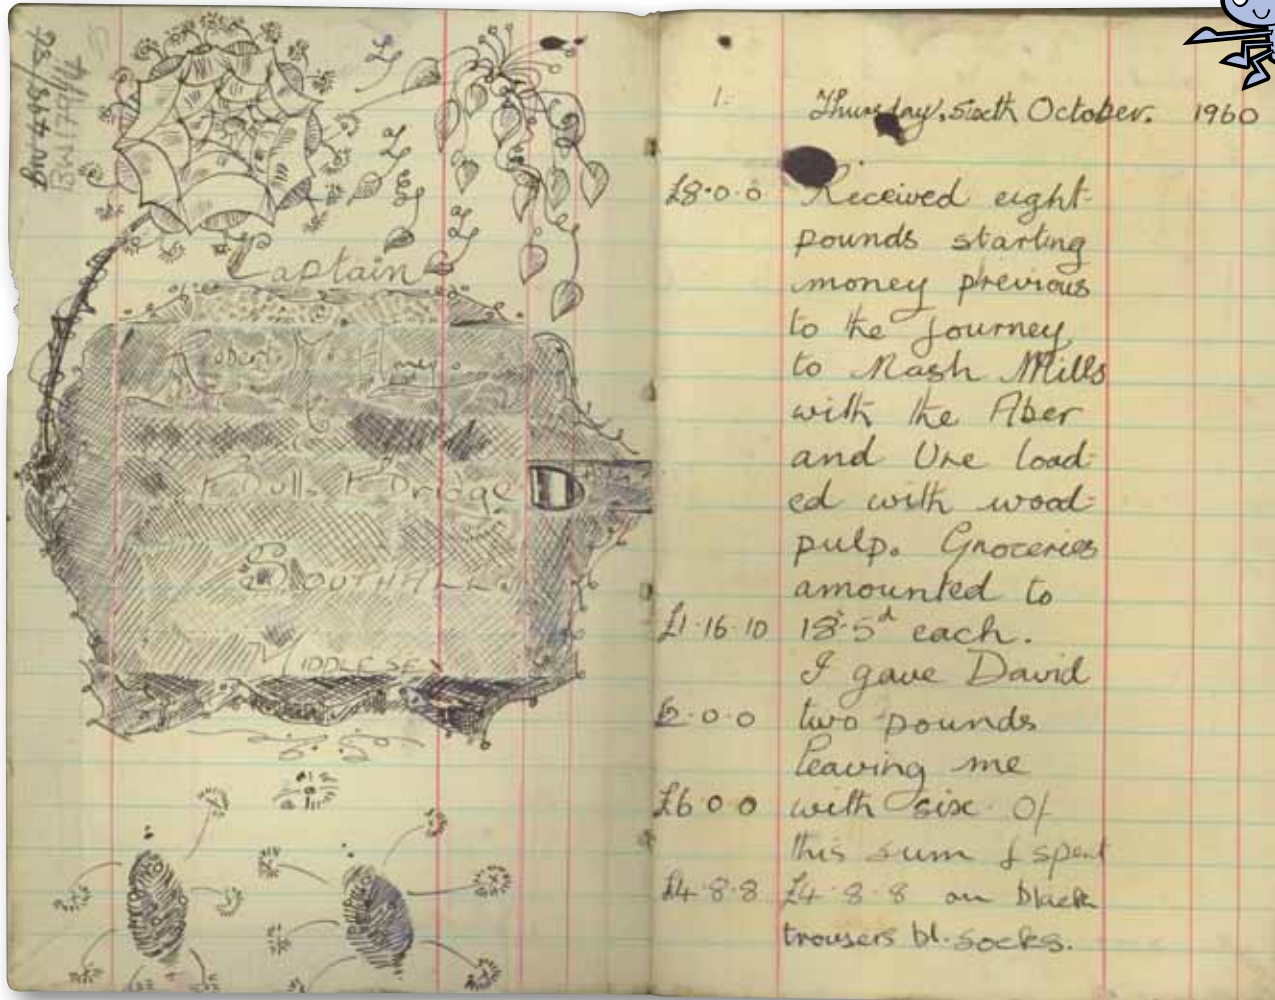 BW 498/86
BW179/14
Captain
Robert
Bulls Bridge
SOUTHALL.
MIDDLESEX
1. Thursday, sixth October. 1960
£8·0·0 Received eight
pounds starting
money previous
to the journey
to Nash Mills
with the Aber
and Ure load-
ed with wood-
pulp. Groceries
amounted to
£1·16·10 18s·5d each.
I gave David
£2·0·0 two pounds
leaving me
£6·0·0 with six. Of
this sum I spent
£4·8·8 £4·8·8 on black
trousers bl. socks.